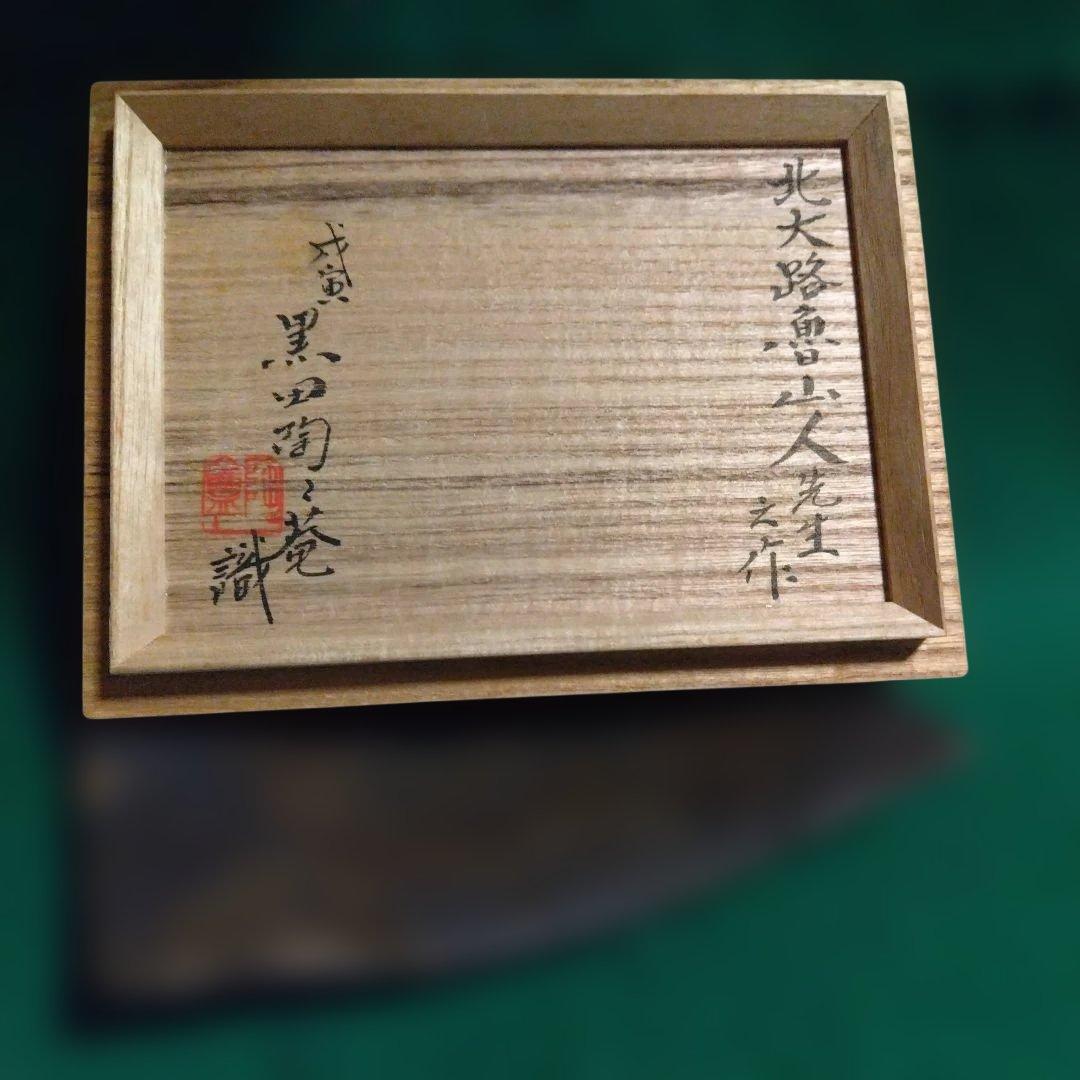 北大路魯山人先生
之作
戊寅
黒田陶々菴
識